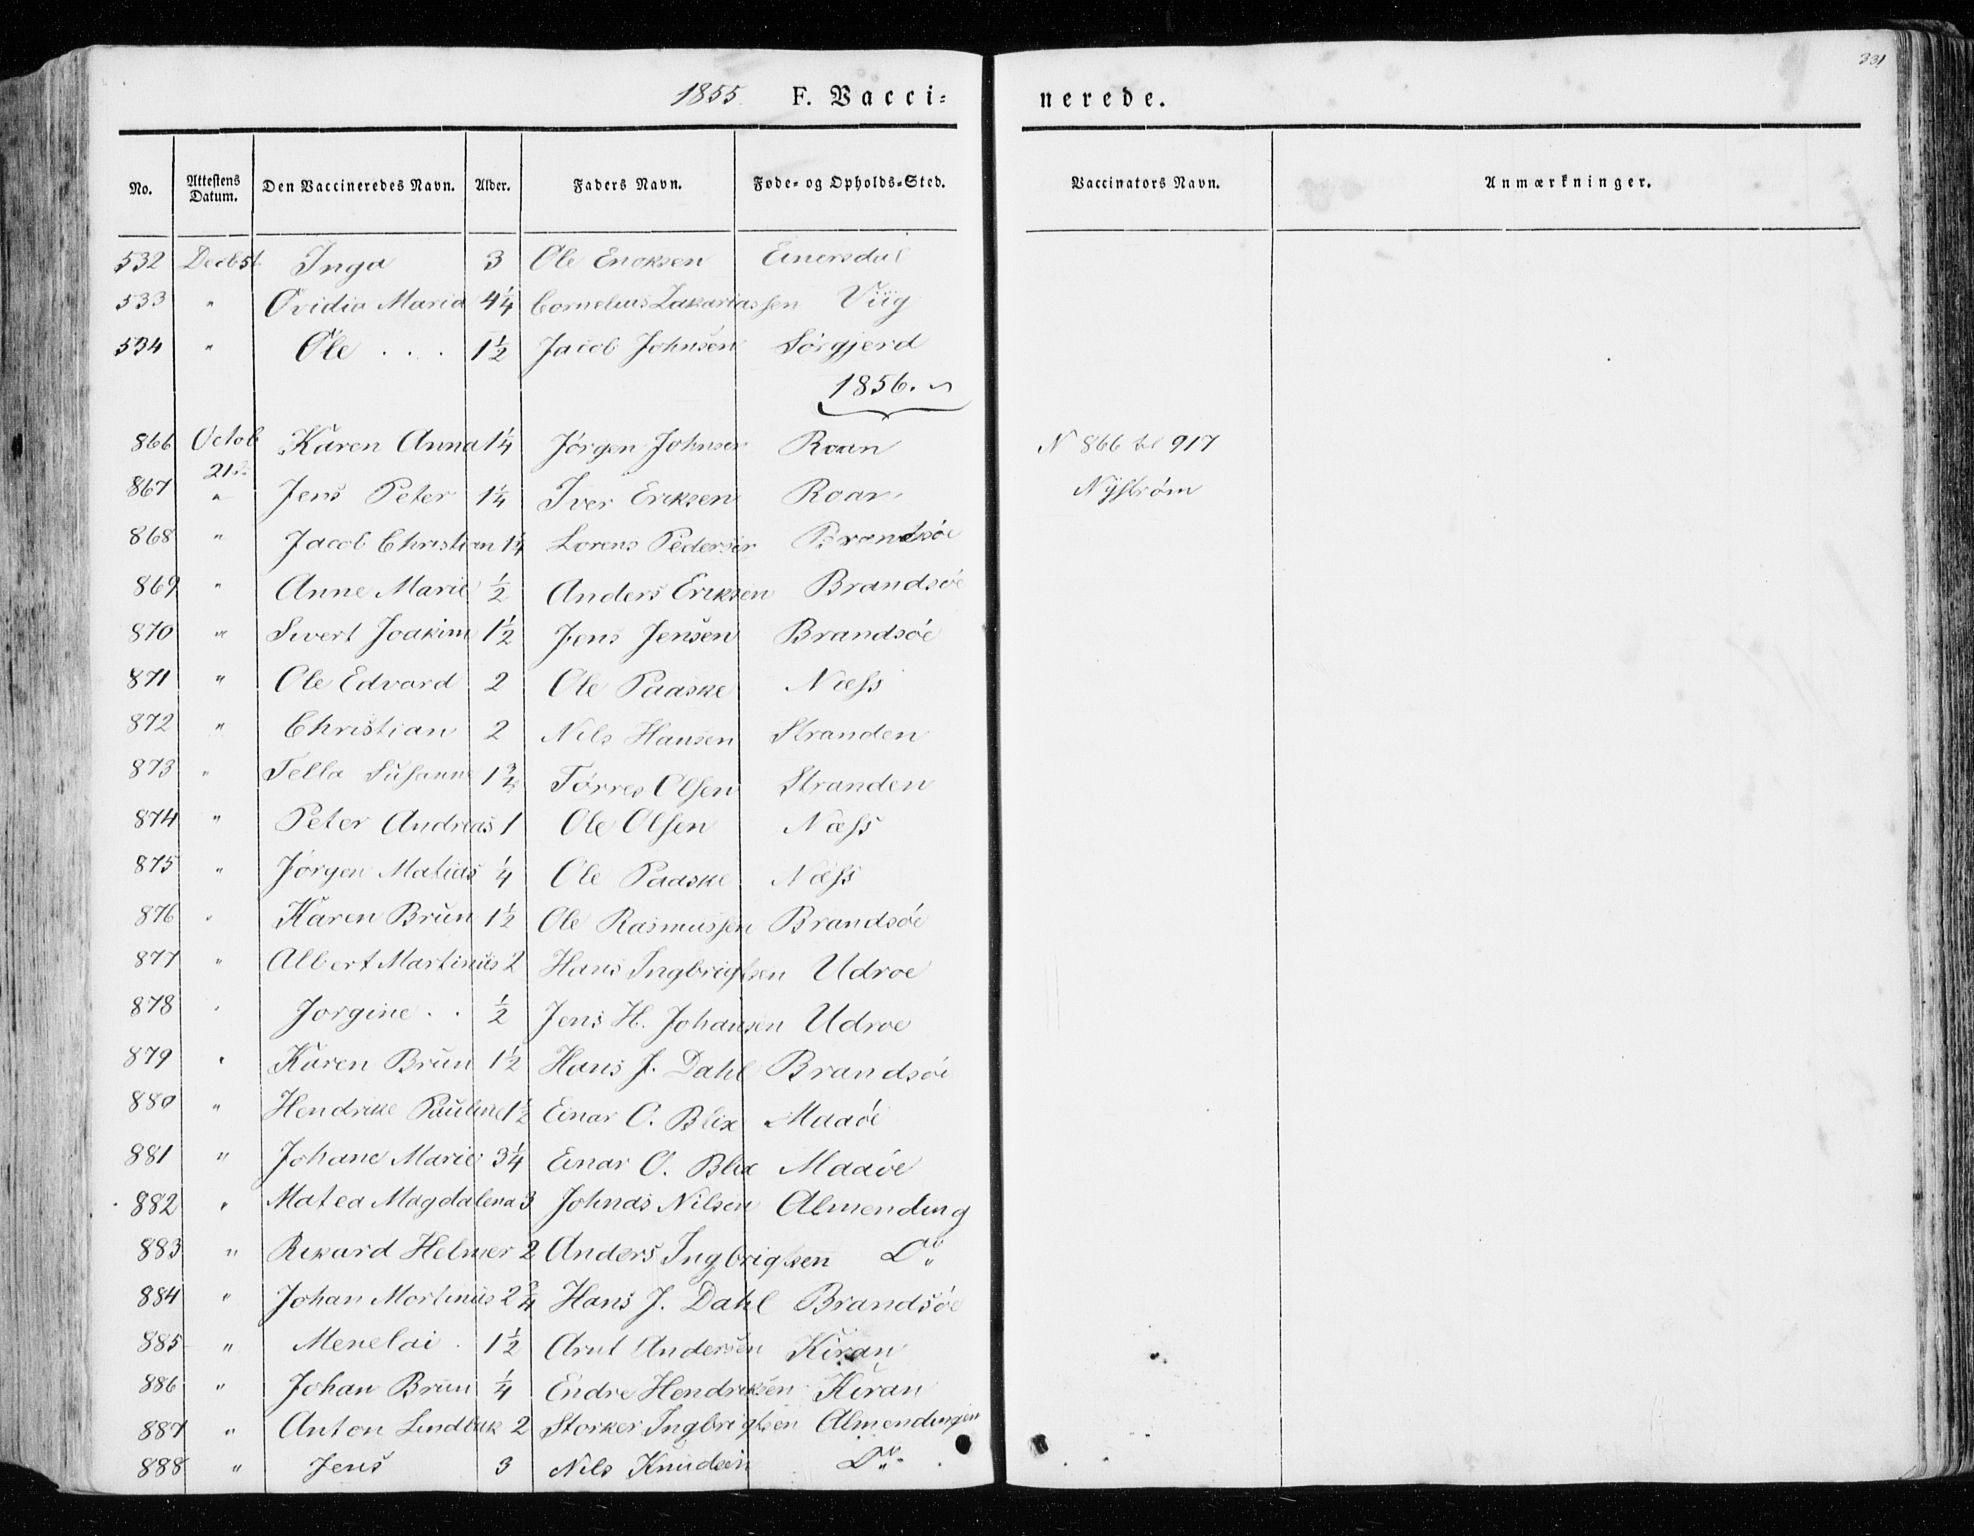 331
1855. F. Vacci- nerede.
No. Attestens Datum. Den Vaccineredes Navn. Alder. Faders Navn. Føde- og Opholds-Sted. Vaccinators Navn. Anmærkninger.
532 Inga 3 Ole Enoksen Einersdal
533 " Ovidia Maria 4¼ Cornelius Zakariassen Viig
534 " Ole . . . 1½ Jacob Johnsen Sørgjerd
1856.
866 Octob 21de Karen Anna 1¼ Jørgen Johnsen Roan N 866 til 917
867 " Jens Peter 1¼ Iver Eriksen Roan Nÿstrøm
868 " Jacob Christian 1¼ Lorens Pedersen Brandsøe
869 " Anne Marie ½ Anders Eriksen Brandsøe
870 " Sivert Joakim 1½ Jens Jensen Brandsøe
871 " Ole Edvard 2 Ole Paaske Næss
872 " Christian 2 Nils Hansen Stranden
873 " Susanne 1¾ Tørres Olsen Stranden
874 " Peter Andreas 1 Ole Olsen Næss
875 " Jørgen Matias ¼ Ole Paaske Næss
876 " Karen Brun 1½ Ole Rasmussen Brandsøe
877 " Albert Martinus 2 Hans Ingbrigtsen Udroe
878 " Jorgine . . ½ Jens H. Johansen Udroe
879 " Karen Brun 1½ Hans J. Dahl Brandsøe
880 " Hendrike Pauline 1½ Einar O. Blix Maaøe
881 " Johane Marie 3¼ Einar O. Blix Maaøe
882 " Matea Magdalena 3 Johnas Nilsen Almending
883 " Rikard Helmer 2 Anders Ingbrigtsen Do
884 " Johan Martinus 2¾ Hans J. Dahl Brandsøe
885 " Menelai . 1½ Arnt Andersen Kiran
886 " Johan Brun ¼ Endre Hendriksen Kiran
887 " Anton Lindbak 2 Storker Ingbrigtsen Almendingen
888 " Jens 3 Nils Knudsen Do